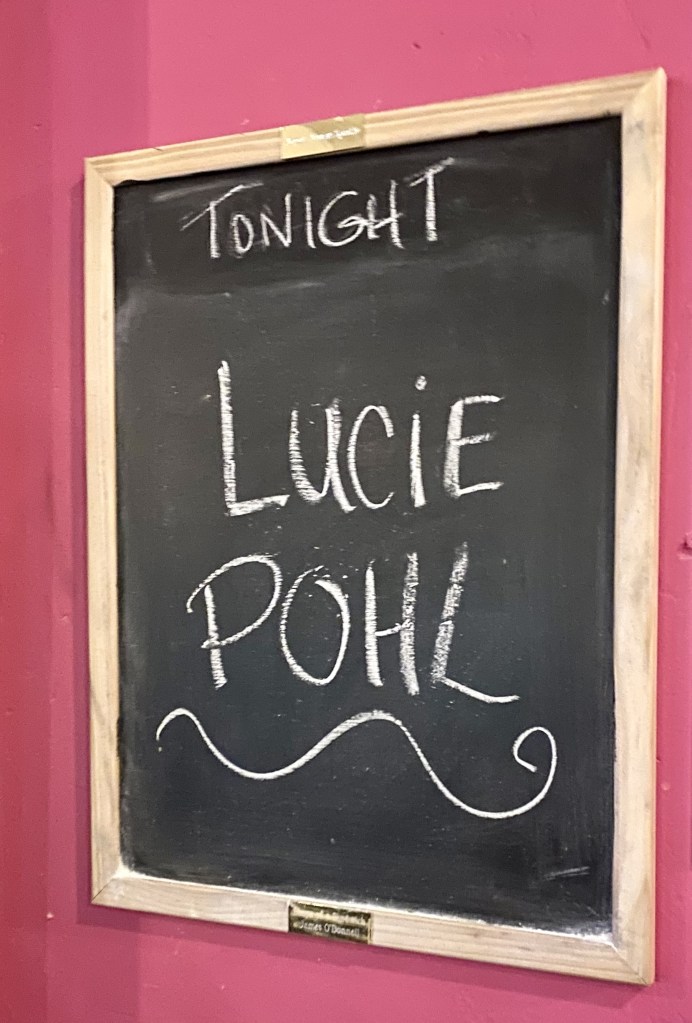 TONIGHT
LUCIE
POHL
James O'Donnell